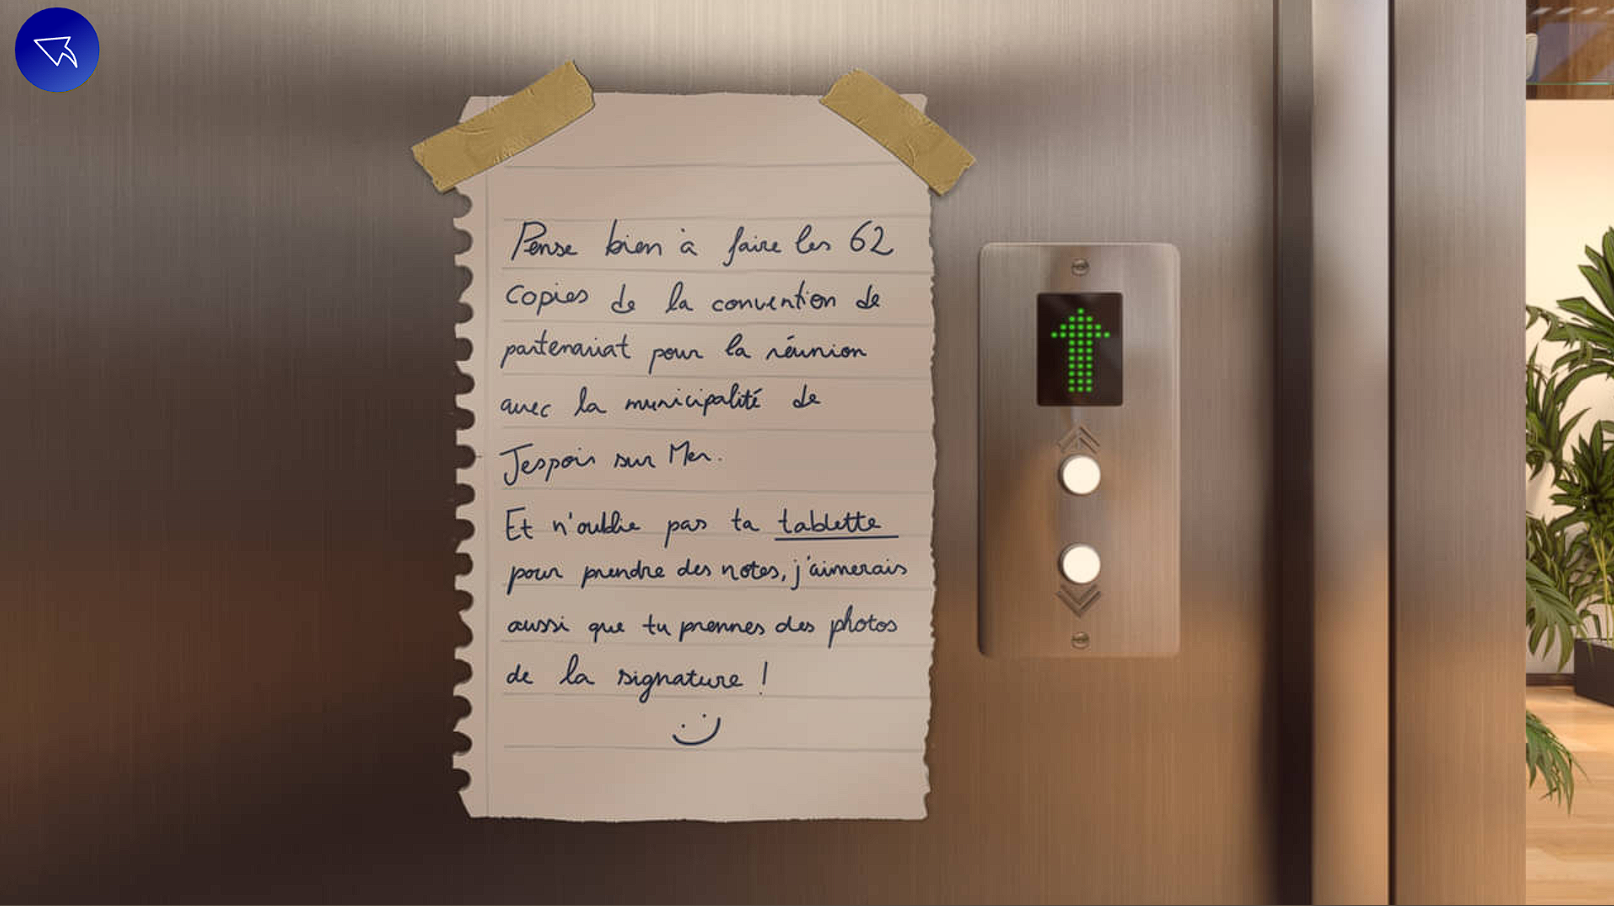 Pense bien à faire les 62
copies de la convention de
partenariat pour la réunion
avec la municipalité de
Jespois sur Mer.
Et n'oublie pas ta tablette
pour prendre des notes, j'aimerais
aussi que tu prennes des photos
de la signature !